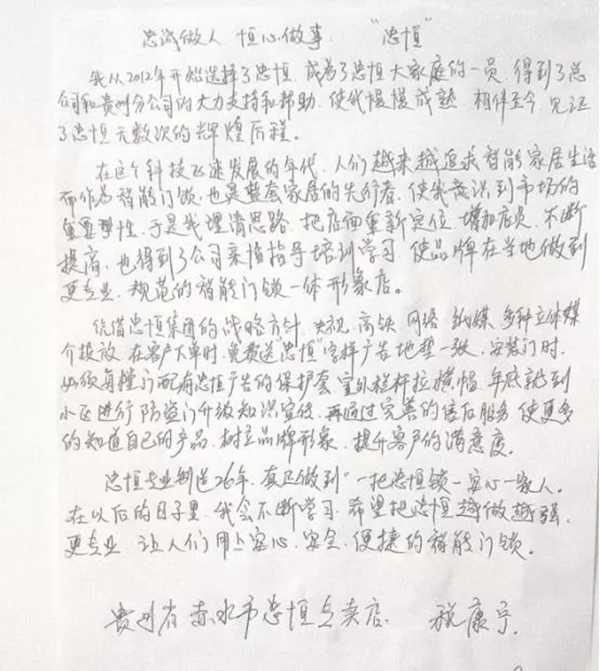 忠诚做人 恒心做事 “忠恒”
我从2012年开始选择了忠恒，成为了忠恒大家庭的一员，得到了总
公司和贵州分公司的大力支持和帮助，使我慢慢成熟，相伴至今，见证
了忠恒无数次的辉煌历程。
在这个科技飞速发展的年代，人们越来越追求智能家居生活
而作为智能门锁，也是整套家居的先行者，使我意识到市场的
重要性，于是我理清思路，把店面重新定位，增加店员，不断
提高，也得到了公司亲临指导培训学习，使品牌在当地做到
更专业、规范的智能门锁一体形象店。
凭借忠恒集团的战略方针，央视、高铁、网络、纸媒、多种立体媒
介投放，在客户下单时，免费送“忠恒”字样广告地垫一张，安装门时，
必须每樘门配有忠恒广告的保护套，室外栏杆拉横幅，年底就到
小区进行防盗门升级知识宣传，再通过完善的售后服务，使更多
的知道自己的产品，树立品牌形象，提升客户的满意度。
忠恒专业制造26年，真正做到“一把忠恒锁一安心一家人。
在以后的日子里，我会不断学习，希望把忠恒越做越强，
更专业，让人们用上安心、安全、便捷的智能门锁。
贵州省赤水市忠恒专卖店 税康宁